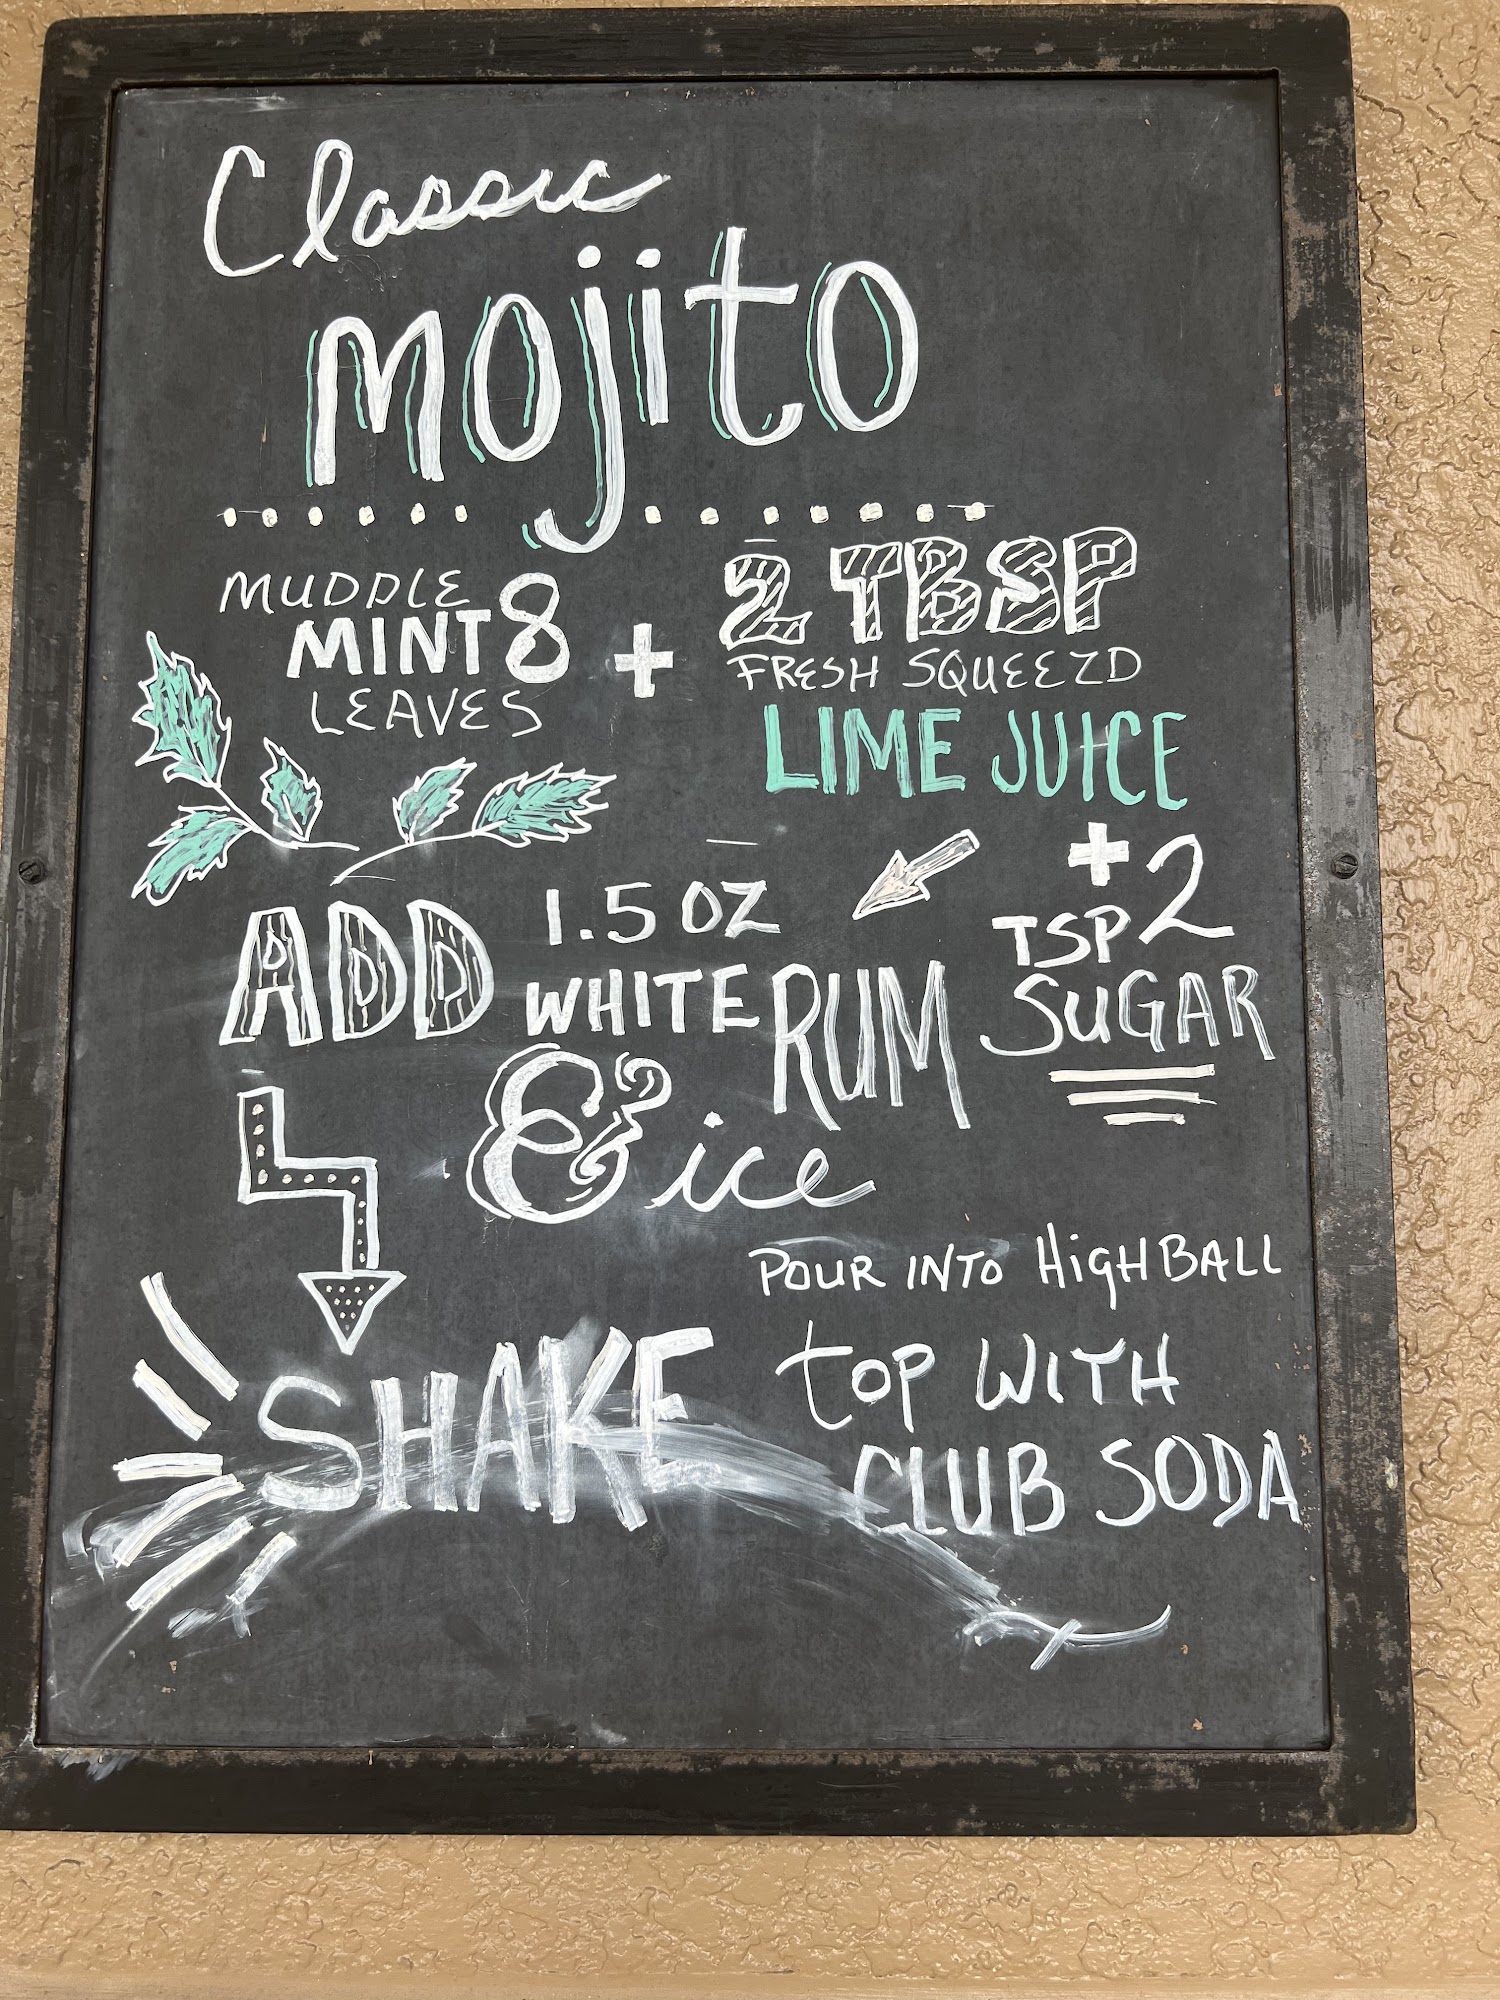 Classic
mojito
MUDDLE
MINT 8
LEAVES
+
2 TBSP
FRESH SQUEEZD
LIME JUICE
+ 2
TSP
SUGAR
ADD
1.5 OZ
WHITE RUM
& ice
SHAKE
POUR INTO HigHBALL
top WITH
CLUB SODA